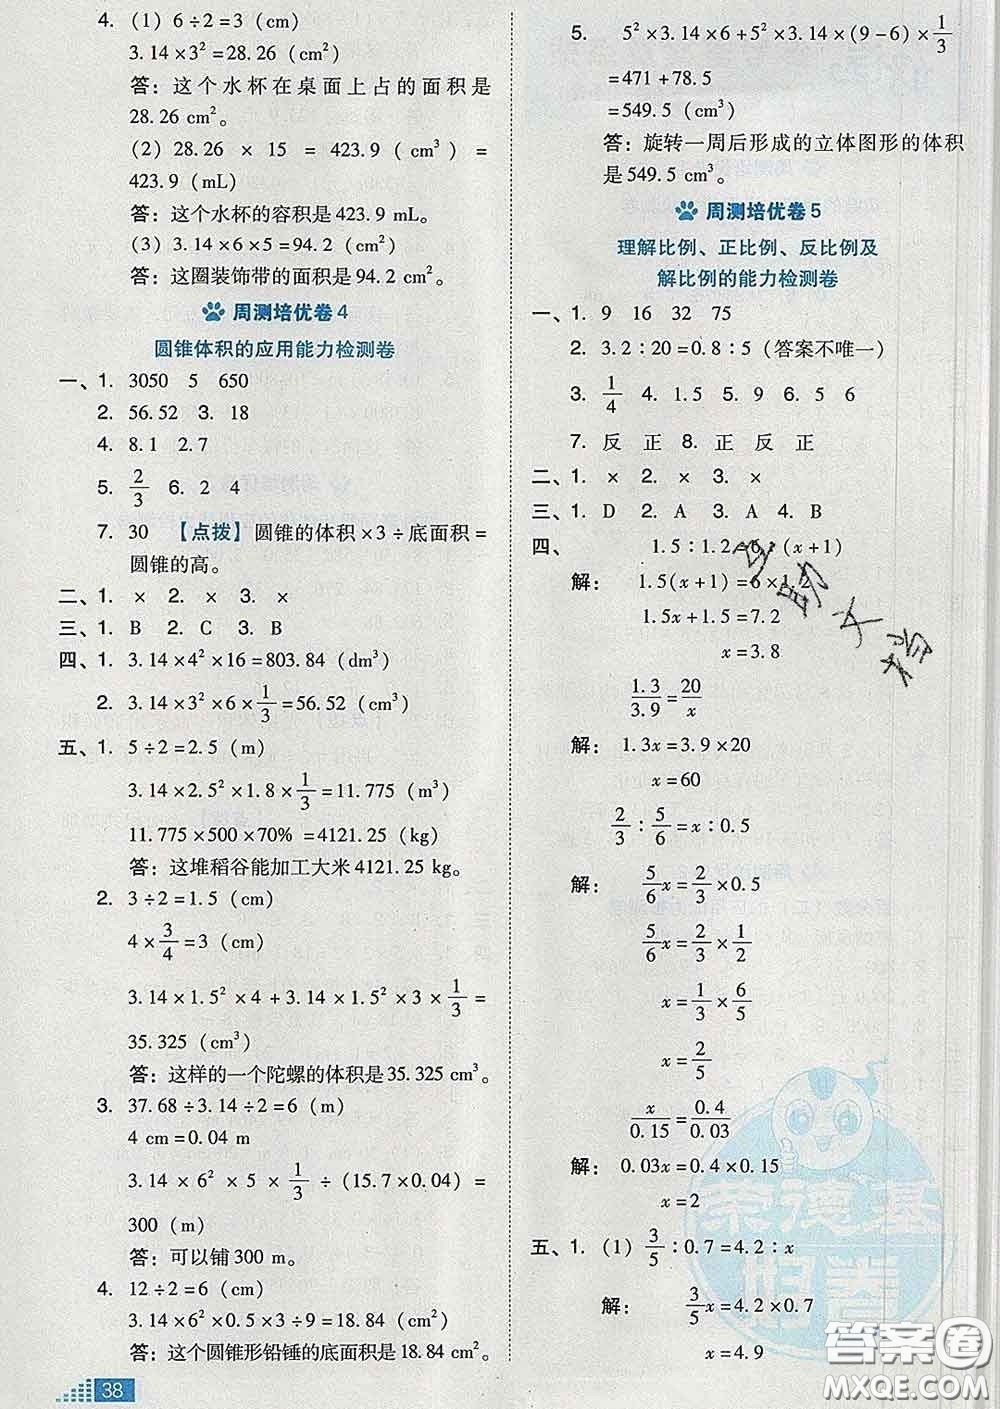 4. (1) 6÷2=3 (cm)
3.14×3²=28.26 (cm²)
答：这个水杯在桌面上占的面积是
28.26 cm²。
(2) 28.26 × 15 = 423.9 (cm³) =
423.9 (mL)
答：这个水杯的容积是 423.9 mL。
(3) 3.14×6×5=94.2 (cm²)
答：这圈装饰带的面积是 94.2 cm²。
周测培优卷 4
圆锥体积的应用能力检测卷
一、1. 3050 5 650
2. 56.52 3. 18
4. 8.1 2.7
5. 2/3 6. 2 4
7. 30 【点拨】圆锥的体积×3÷底面积=
圆锥的高。
二、1. × 2. × 3. ×
三、1. B 2. C 3. B
四、1. 3.14×4²×16=803.84 (dm³)
2. 3.14×3²×6×1/3=56.52 (cm³)
五、1. 5÷2=2.5 (m)
3.14×2.5²×1.8×1/3=11.775 (m³)
11.775×500×70%=4121.25 (kg)
答：这堆稻谷能加工大米 4121.25 kg。
2. 3÷2=1.5 (cm)
4×3/4=3 (cm)
3.14×1.5²×4+3.14×1.5²×3×1/3=
35.325 (cm³)
答：这样的一个陀螺的体积是 35.325 cm³。
3. 37.68÷3.14÷2=6 (m)
4 cm=0.04 m
3.14×6²×5×1/3÷(15.7×0.04)=
300 (m)
答：可以铺 300 m。
4. 12÷2=6 (cm)
3.14×6²×0.5×3÷9=18.84 (cm²)
答：这个圆锥形铅锤的底面积是 18.84 cm²。
38
5. 5²×3.14×6+5²×3.14×(9-6)×1/3
=471+78.5
=549.5 (cm³)
答：旋转一周后形成的立体图形的体积
是 549.5 cm³。
周测培优卷 5
理解比例、正比例、反比例及
解比例的能力检测卷
一、1. 9 16 32 75
2. 3.2∶20=0.8∶5 (答案不唯一)
3. 1/4 4. 1.5 5. 9 6. 5 6
7. 反 正 8. 正 反 正
二、1. × 2. × 3. ×
三、1. D 2. A 3. A 4. B
四、 1.5∶1.2=6∶(x+1)
解： 1.5(x+1)=6×1.2
1.5x+1.5=7.2
x=3.8
1.3/3.9=20/x
解： 1.3x=3.9×20
x=60
2/3∶5/6=x∶0.5
解： 5/6x=2/3×0.5
5/6x=2/3×1/2
x=1/3×6/5
x=2/5
x/0.15=0.4/0.03
解： 0.03x=0.4×0.15
x=2
五、1. (1) 3/5∶0.7=4.2∶x
解： 3/5x=4.2×0.7
x=4.9
荣德基
答案圈
MXQE.COM